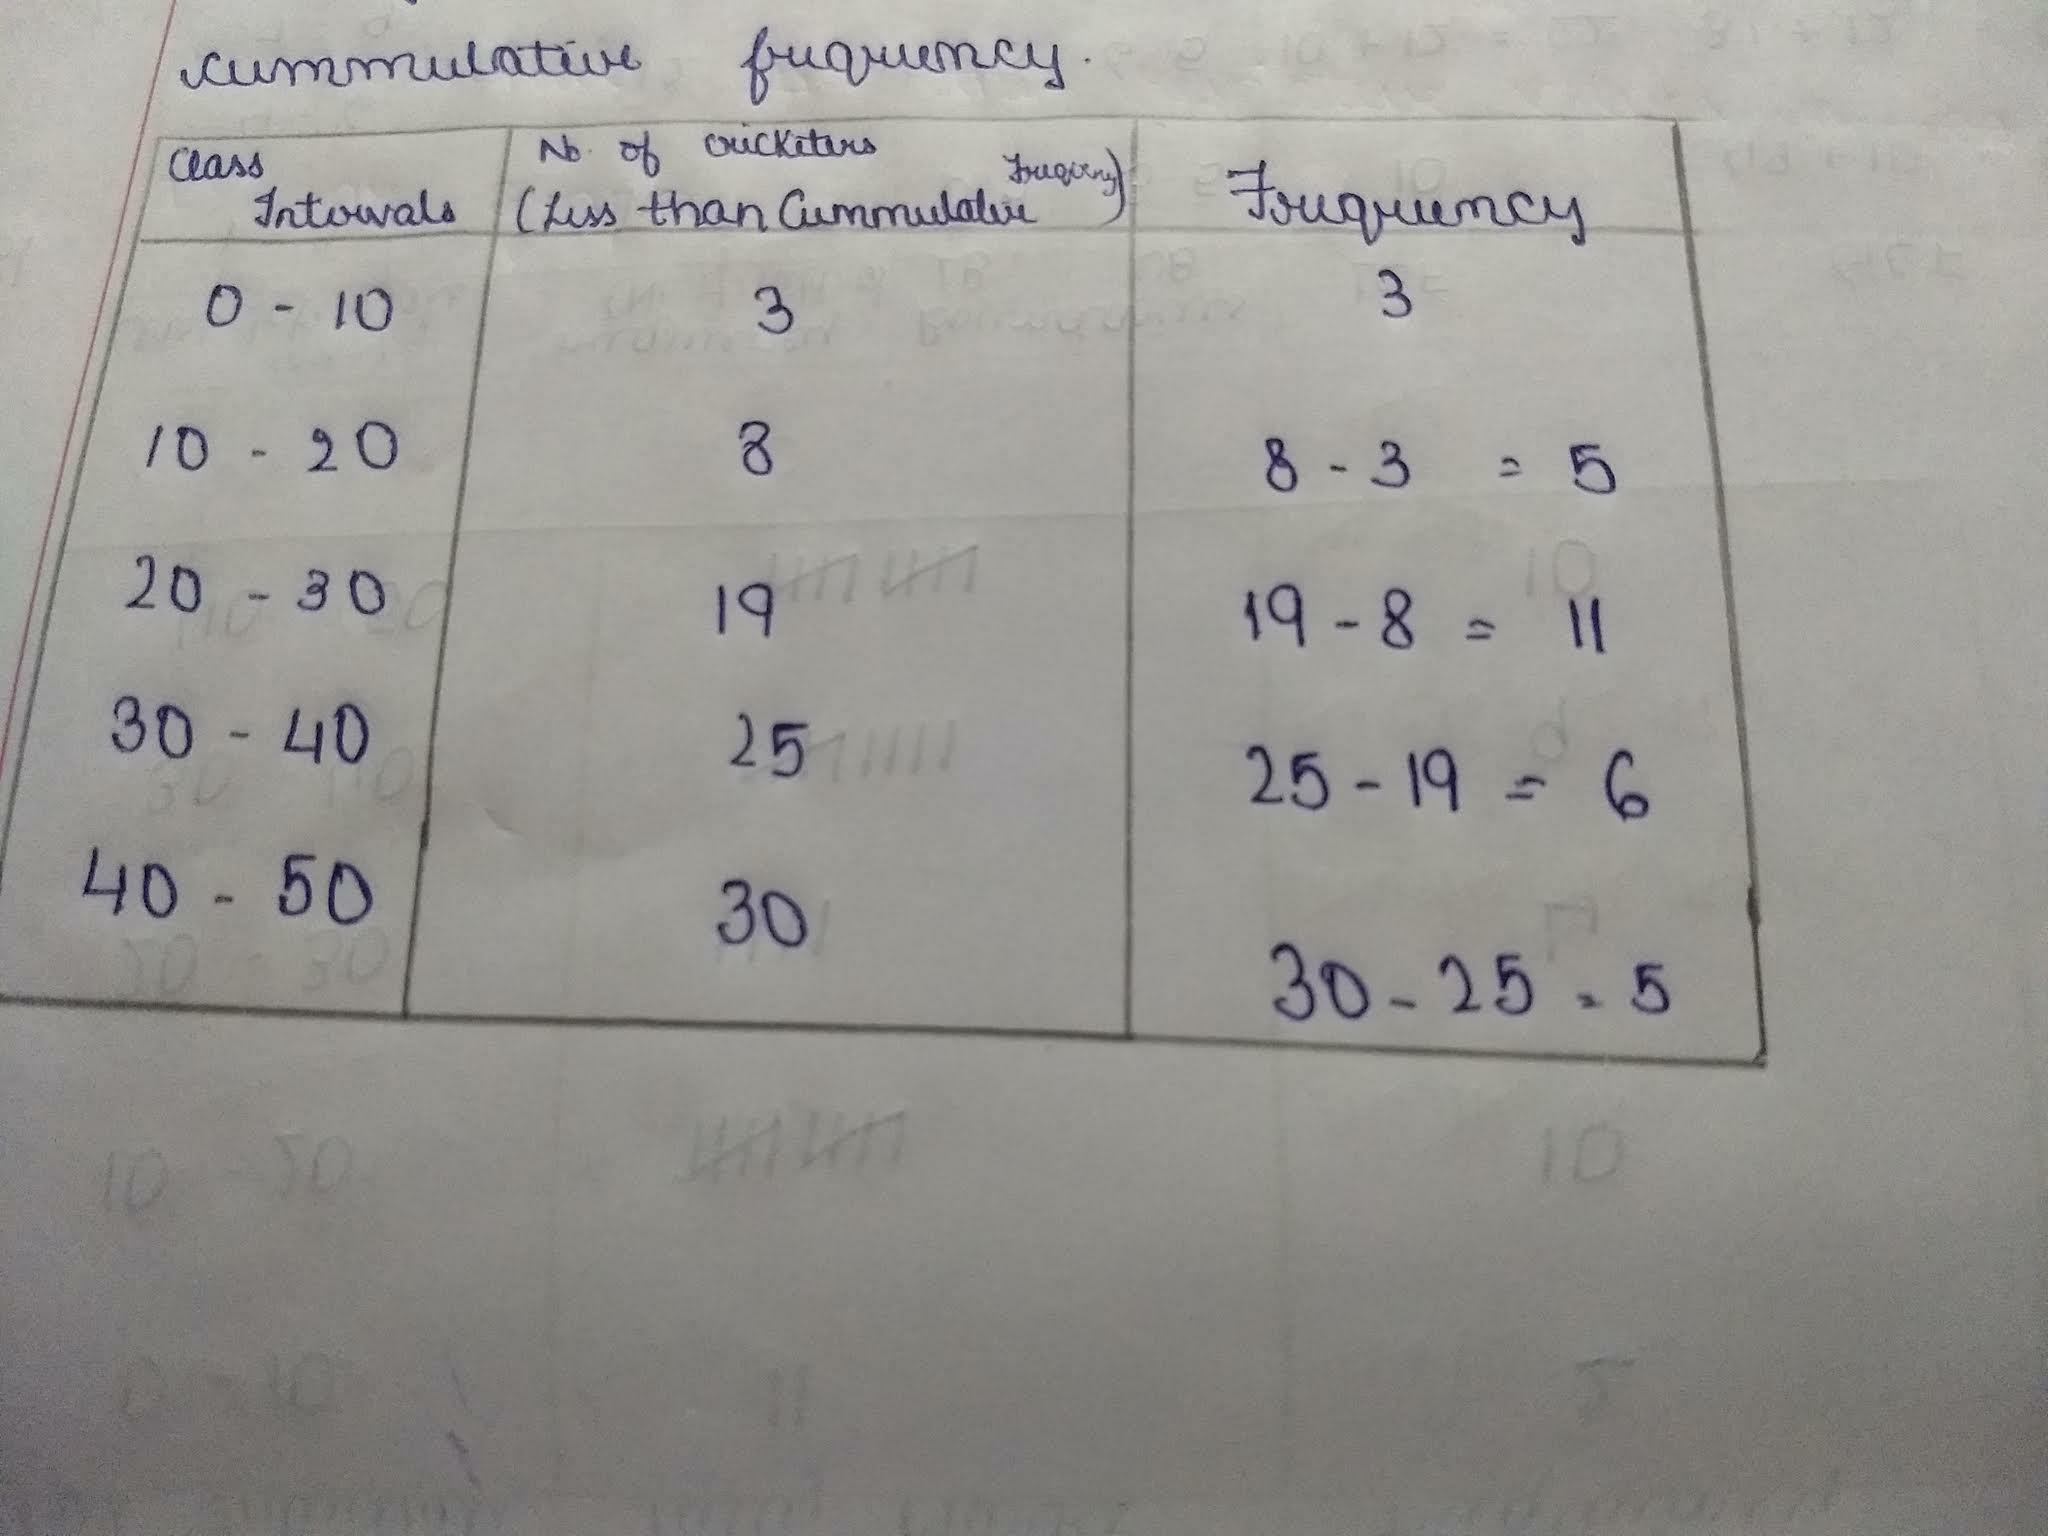 cummulative frequency.
Class Intervals | No. of cricketers (Less than Cummulative Frequency) | Frequency
0 - 10 | 3 | 3
10 - 20 | 8 | 8 - 3 = 5
20 - 30 | 19 | 19 - 8 = 11
30 - 40 | 25 | 25 - 19 = 6
40 - 50 | 30 | 30 - 25 = 5